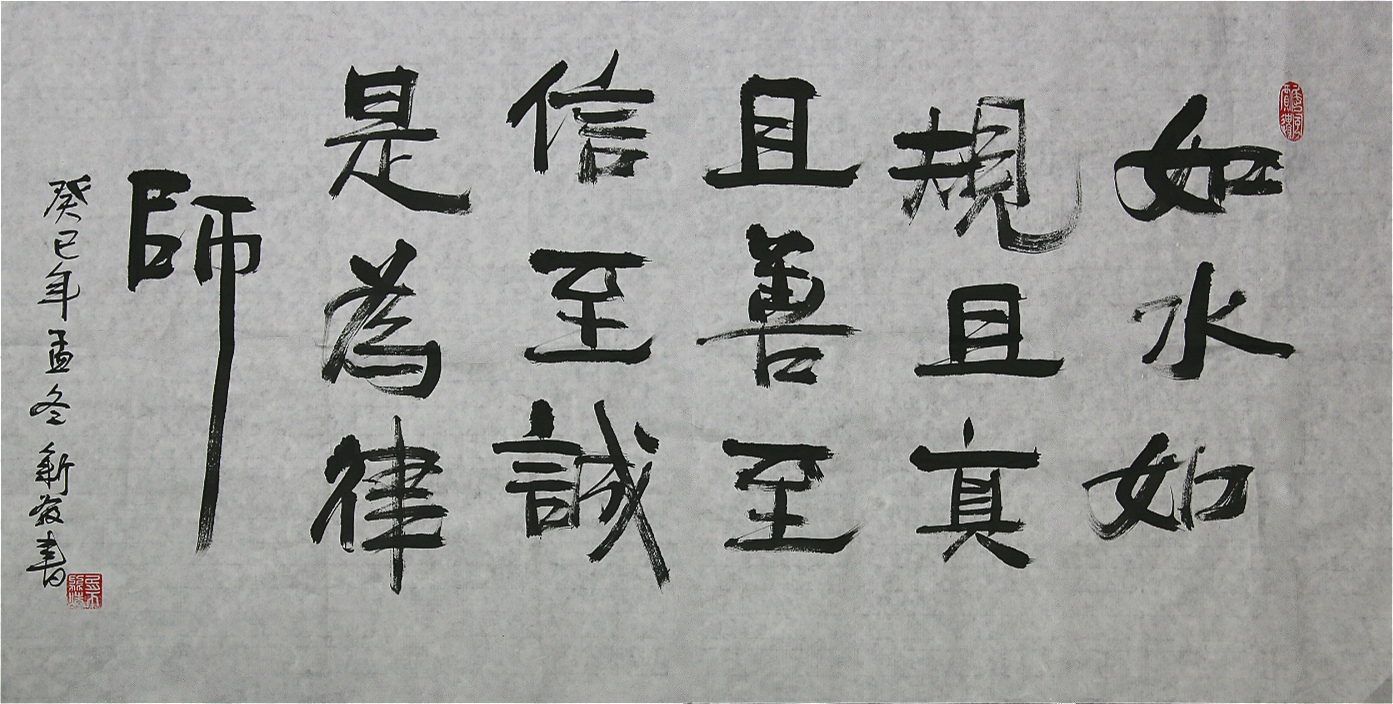 如水如
規且真
且善至
信至誠
是為律
師
癸巳年孟冬新發書